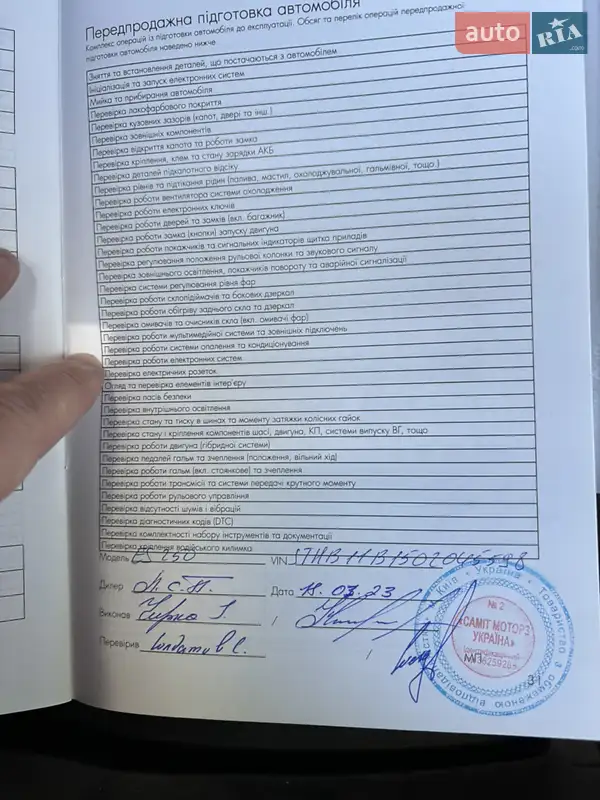 auto RIA .com
Передпродажна підготовка автомобіля
Комплекс операцій із підготовки автомобіля до експлуатації. Обсяг та перелік операцій передпродажної
підготовки автомобіля наведено нижче.
Зняття та встановлення деталей, що постачаються з автомобілем
Ініціалізація та запуск електронних систем
Мийка та прибирання автомобіля
Перевірка лакофарбового покриття
Перевірка кузовних зазорів (капот, двері та інш.)
Перевірка зовнішніх компонентів
Перевірка відкриття капота та роботи замка
Перевірка кріплення, клем та стану зарядки АКБ
Перевірка деталей підкапотного відсіку
Перевірка рівнів та підтікання рідин (палива, мастил, охолоджувальної, гальмівної, тощо.)
Перевірка роботи вентилятора системи охолодження
Перевірка роботи електронних ключів
Перевірка роботи дверей та замків (вкл. багажник)
Перевірка роботи замка (кнопки) запуску двигуна
Перевірка роботи покажчиків та сигнальних індикаторів щитка приладів
Перевірка регулювання положення рульової колонки та звукового сигналу
Перевірка зовнішнього освітлення, покажчиків повороту та аварійної сигналізації
Перевірка системи регулювання рівня фар
Перевірка роботи склопідіймачів та бокових дзеркал
Перевірка роботи обігріву заднього скла та дзеркал
Перевірка омивачів та очисників скла (вкл. омивачі фар)
Перевірка роботи мультимедійної системи та зовнішніх підключень
Перевірка роботи системи опалення та кондиціонування
Перевірка роботи електронних систем
Перевірка електричних розеток
Огляд та перевірка елементів інтер'єру
Перевірка пасів безпеки
Перевірка внутрішнього освітлення
Перевірка стану та тиску в шинах та моменту затяжки колісних гайок
Перевірка стану і кріплення компонентів шасі, двигуна, КП, системи випуску ВГ, тощо
Перевірка роботи двигуна (гібридної системи)
Перевірка педалей гальм та зчеплення (положення, вільний хід)
Перевірка роботи гальм (вкл. стоянкове) та зчеплення
Перевірка роботи трансмісії та системи передачі крутного моменту
Перевірка роботи рульового управління
Перевірка відсутності шумів і вібрацій
Перевірка діагностичних кодів (DTC)
Перевірка комплектності набору інструментів та документації
Перевірка кріплення водійського килимка
Модель ES 250 VIN
Дилер Дата 18.03.23
Виконав /
Перевірив /
Київ * Україна * Товариство з обмеженою відповідальністю
№ 2
«САМІТ МОТОРЗ
УКРАЇНА»
МП